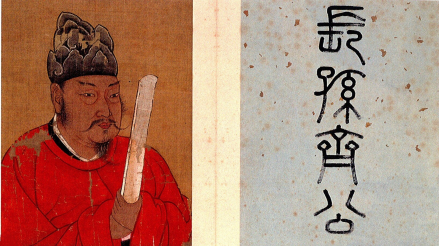 長孫齊公